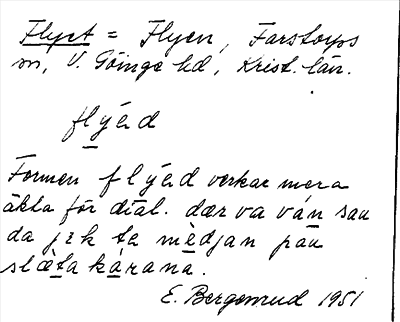 Flyet = Flyen, Farstorps
sn, V. Göinge hd, Krist. län.
flýəd
Formen flýəd verkar mera
äkta för dial. dær vaván sau
da jɪk ta mèdjan pau
slæta kárana.
E. Bergenrud 1951